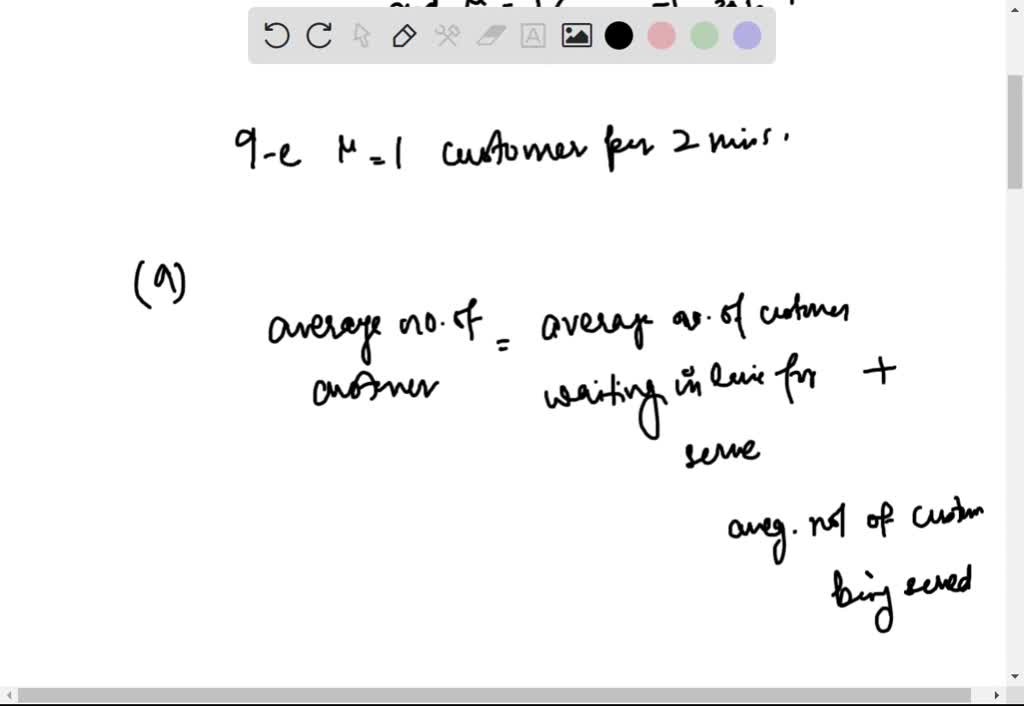 i-e μ = 1 customer per 2 mins.
(a)
average no. of = average no. of customer
customer waiting in line for +
serve
aveg. no of custom
being served